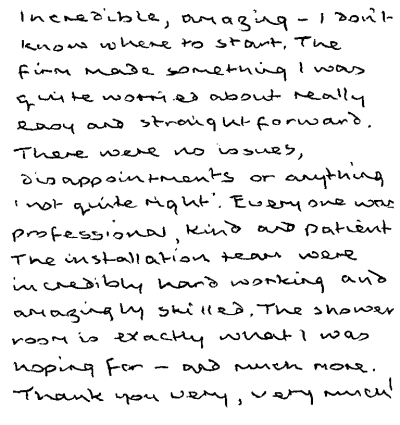 Incredible, amazing – I don't
know where to start. The
firm made something I was
quite worried about really
easy and straightforward.
There were no issues,
disappointments or anything
'not quite right'. Everyone was
professional, kind and patient
The installation team were
incredibly hard working and
amazingly skilled. The shower
room is exactly what I was
hoping for – and much more.
Thank you very, very much!